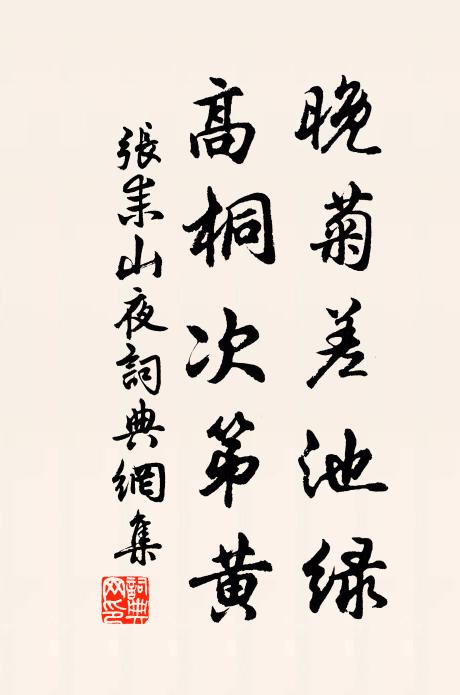 晚菊差池緑
高桐次第黄
張耒山夜詞典網集
詞典网印